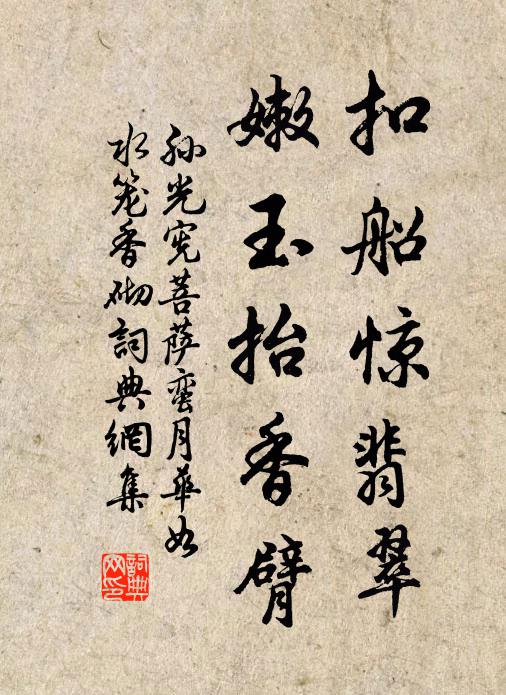 扣船惊翡翠
嫩玉抬香臂
孙光宪菩萨蛮月华如
水笼香砌詞典網集
詞典
网印